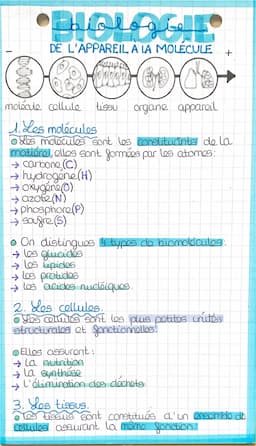 BIOLOGIE
biologie
DE L'APPAREIL À LA MOLÉCULE
- +
molécule cellule tissu organe appareil
1. Les molécules
Les molécules sont les constituants de la
matière, elles sont formées par les atomes:
→ carbone (C)
→ hydrogène (H)
→ oxygène (O)
→ azote (N)
→ phosphore (P)
→ soufre (S)
On distingue 4 types de biomolécules:
→ les glucides
→ les lipides
→ les protides
→ les acides nucléiques.
2. Les cellules.
Les cellules sont les plus petites unités
structurales et fonctionnelles.
Elles assurent:
→ La nutrition
→ La synthèse
→ L'élimination des déchets.
3. Les tissus.
Les tissus sont constitués d'un ensemble de
cellules assurant la même fonction.